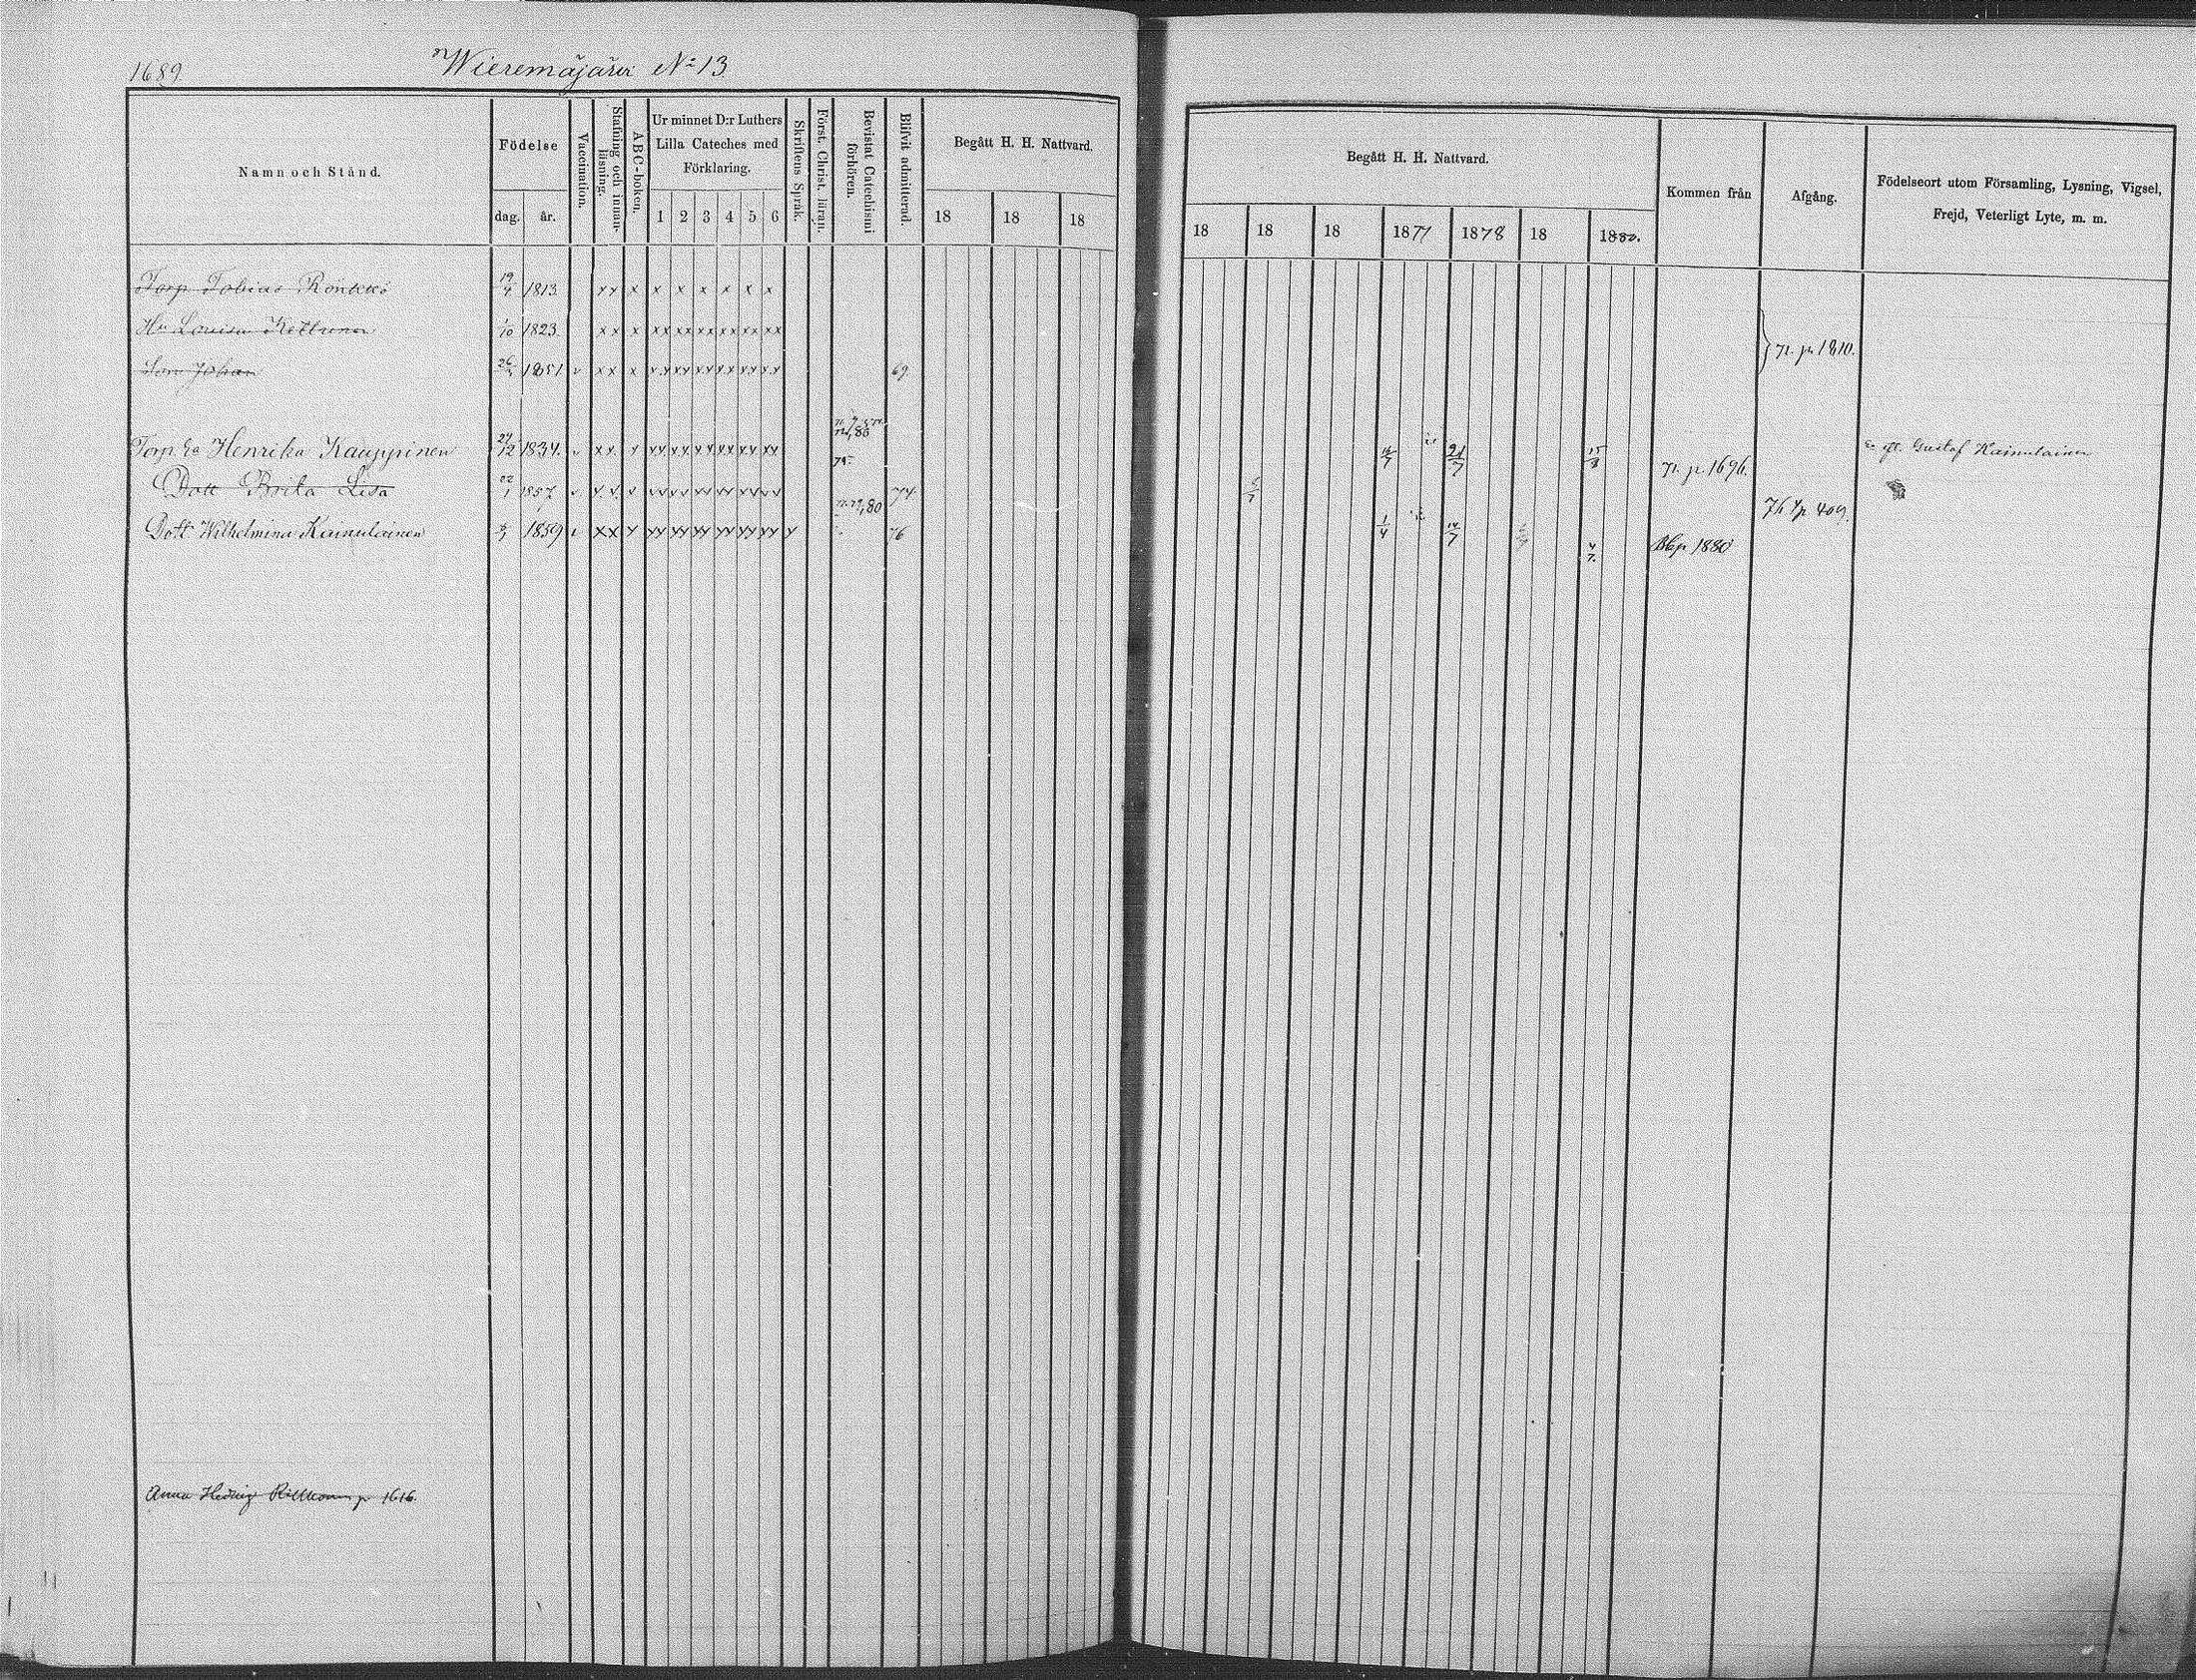 1689
Wieremäjärvi No 13
Namn och Stånd.
Födelse
dag. år.
Vaccination.
Stafning och innanläsning.
ABC-boken.
Ur minnet D:r Luthers
Lilla Cateches med
Förklaring.
1 2 3 4 5 6
Skriftens Språk.
Först. Christ. läran.
Bevistat Catechismi
förhören.
Blifvit admitterad.
Begått H. H. Nattvard.
18 18 18
Begått H. H. Nattvard.
18 18 18 1877 1878 18 1880.
Kommen från
Afgång.
Födelseort utom Församling, Lysning, Vigsel,
Frejd, Veterligt Lyte, m. m.
Torp. Tobias Rönkkö 19/4 1813. x x x x x x x x x
Hu Lovisa 1/10 1823. x x x xx xx xx xx xx xx
Son Johan 1851 v x x x xx xx xx xx xx xx 69.
71. p. 1810.
Torp. Ea Henrika Kauppinen 24/12 1834. v x x x xx xx xx xx xx xx 75. 21/7 15/8 71. p. 1696. Gustaf Kainulainen
Dott Brita Lisa 22/1 1857 v x x x xx xx xx xx xx xx 80 74 409.
Dott Wilhelmina Kainulainen 1859 v x x x xx xx xx xx xx xx x 76 1/4 14/7 4/7. Bbp 1880
Anna Hedvig p. 1616.